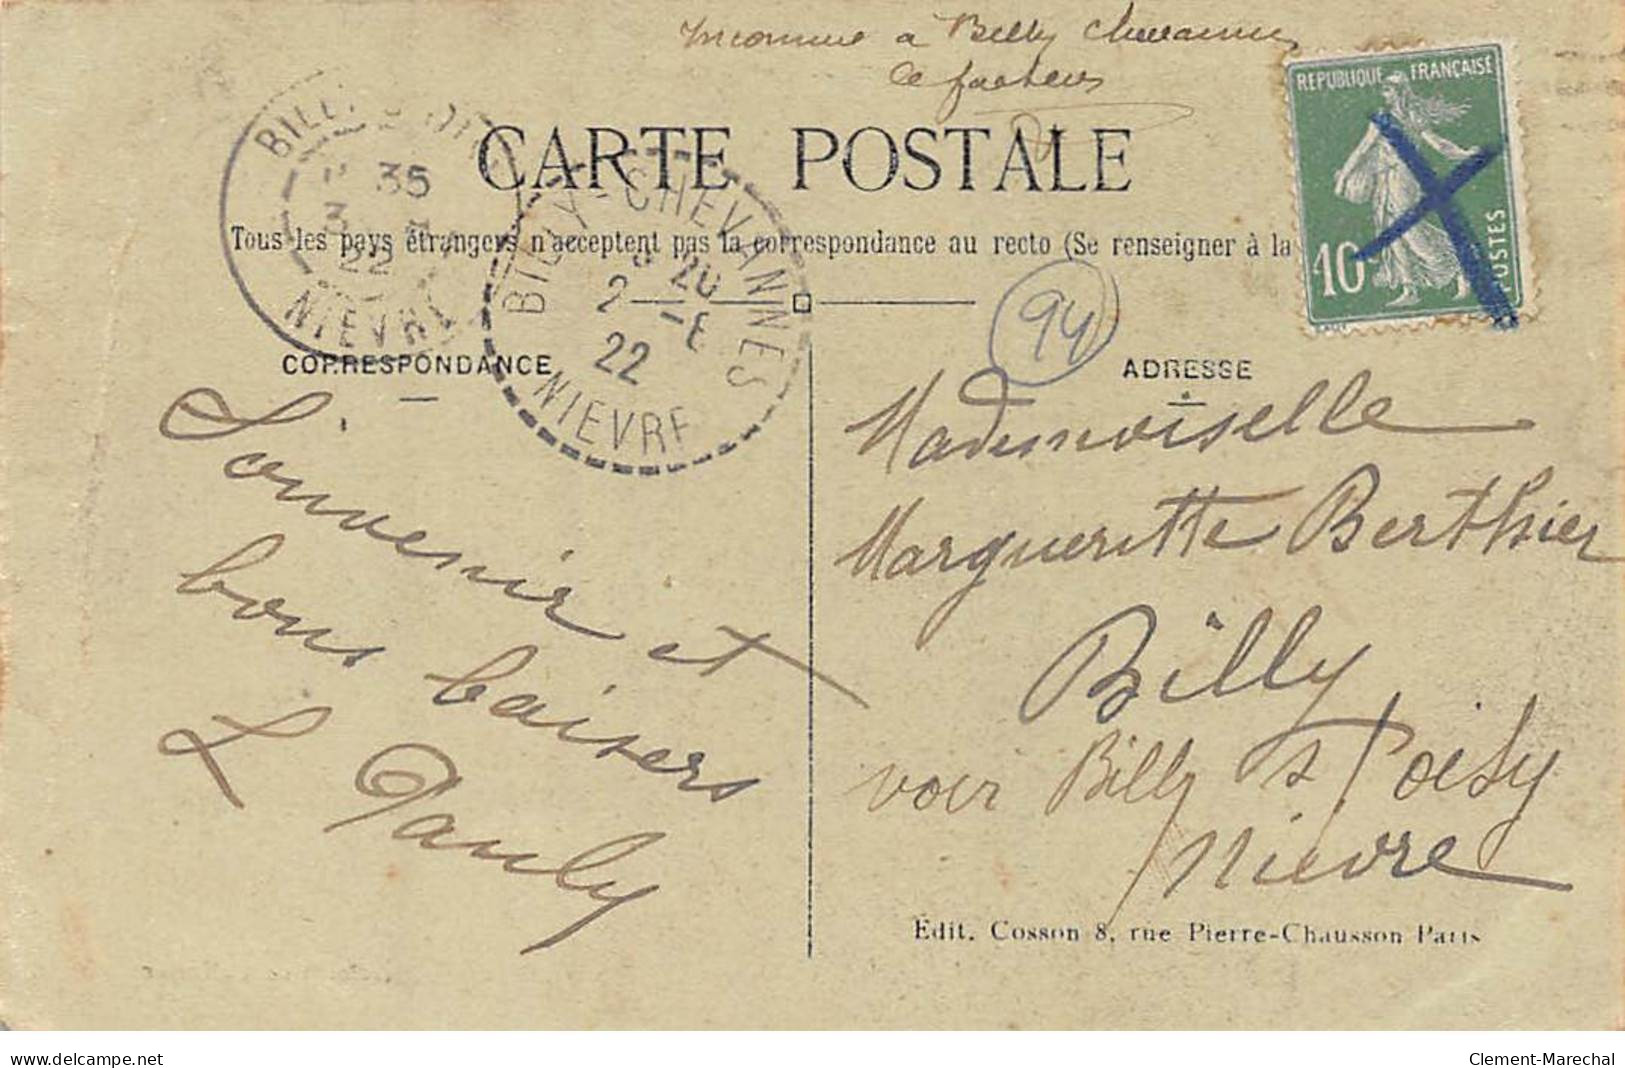 Inconnue à Billy Chevannes
le facteur
RÉPUBLIQUE FRANÇAISE
10c
POSTES
CARTE POSTALE
Tous les pays étrangers n'acceptent pas la correspondance au recto (Se renseigner à la
35
22
NIEVRE
BILLY-CHEVANNES
20
2 -6
22
NIEVRE
94
CORRESPONDANCE
ADRESSE
Souvenir et
bons baisers
L Pauly
Mademoiselle
Margueritte Berthier
Billy
voir Billy s/ Oisy
Nievre
Edit. Cosson 8, rue Pierre-Chausson Paris
delcampe.net
Clement-Marechal